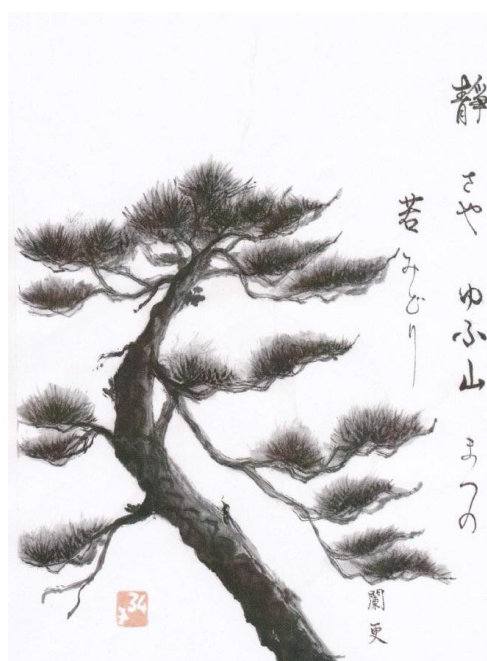 靜さや ゆふ山 まつの
若みどり
闌更